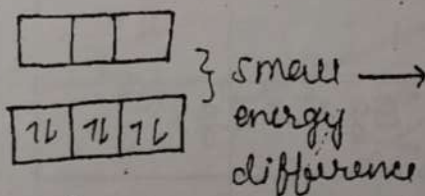 } small →
energy
difference
⥮ ⥮ ⥮